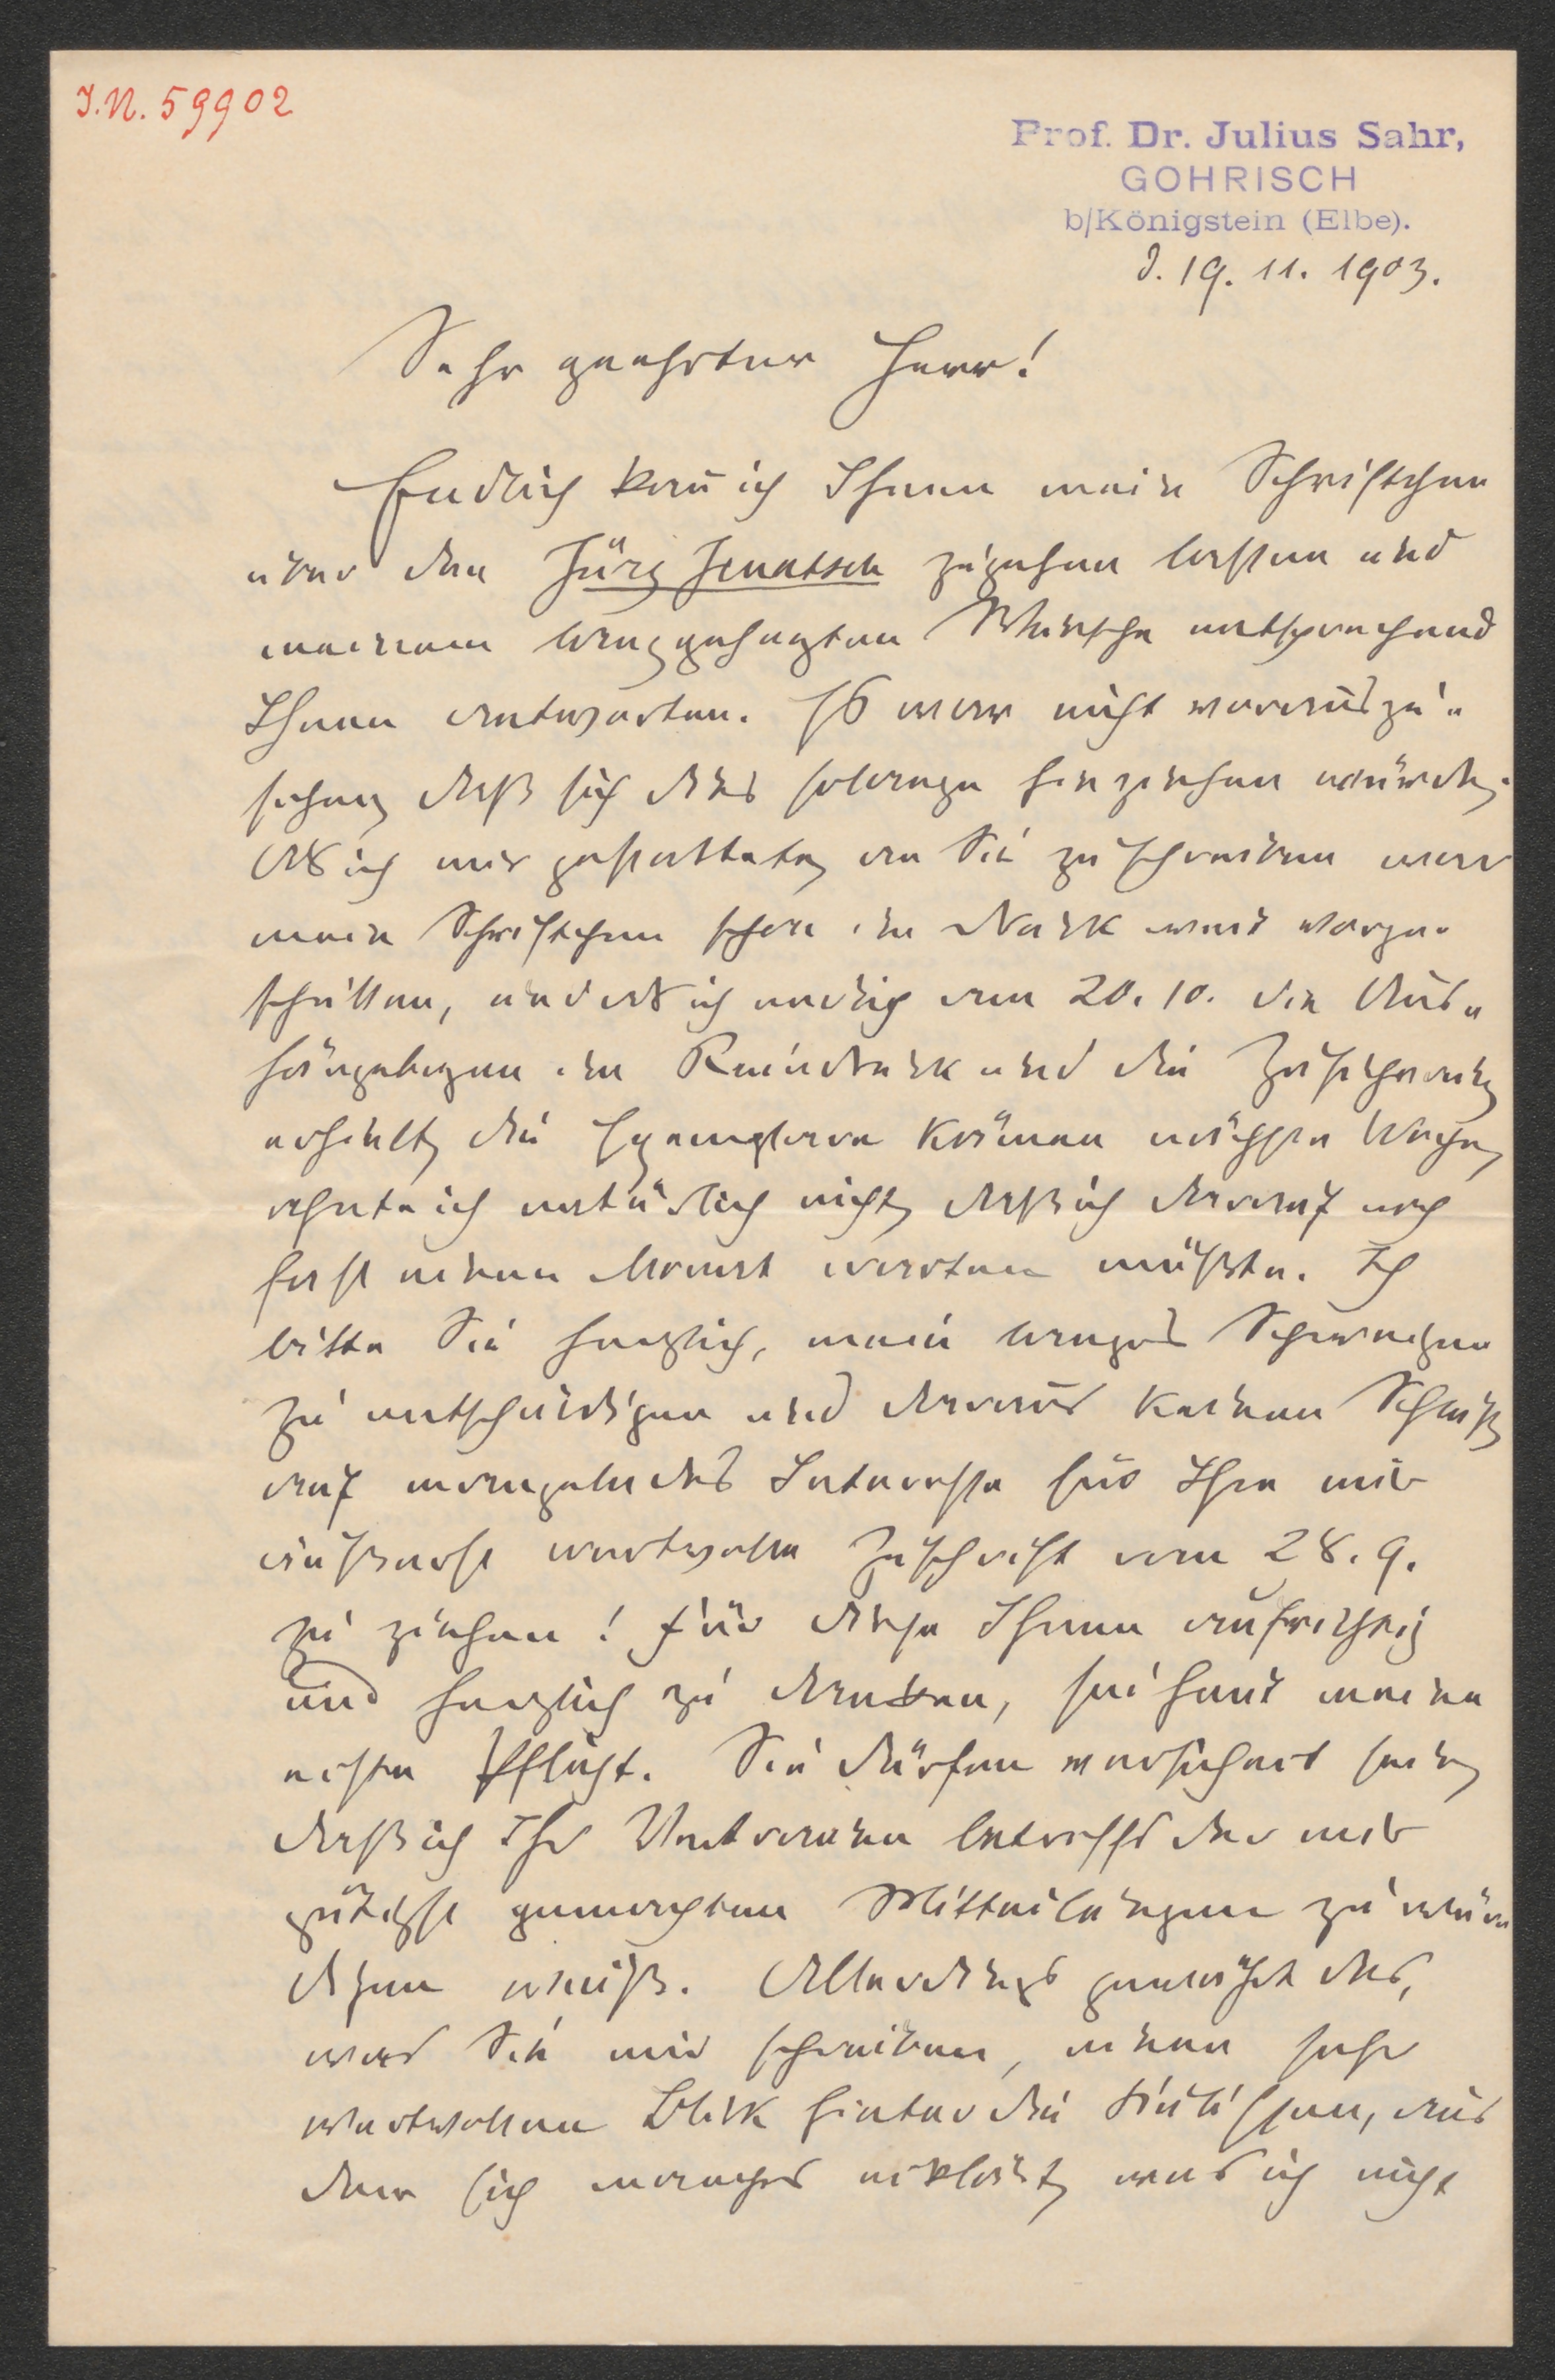 I.N. 59902
Prof. Dr. Julius Sahr,
GOHRISCH
b/Königstein (Elbe).
d. 19. 11. 1903.
Sehr geehrter Herr!
Endlich kann̄ ich Ihnen mein Schriftchen
über den Jürg Jenatsch zugehen lassen und
meinem langgehegten Wunsche entsprechend
Ihnen antworten. Es war nicht vorauszu-
sehen, daß sich das solange hinziehen würde.
Als ich mir gestattete, an Sie zu schreiben war
mein Schriftchen schon im Druck weit vorge-
schritten, und als ich endlich am 20. 10. die Aus-
hängebogen im Reindruck und die Zusicherung
erhielt, die Exemplare kämen nächste Woche,
ahnte ich natürlich nicht, daß ich darauf noch
fast einen Monat warten müßte. Ich
bitte Sie herzlich, mein langes Schweigen
zu entschuldigen und daraus keinen Schluß
auf mangelndes Interesse für Ihre mir
äußerst wertvolle Zuschrift vom 28. 9.
zu ziehen! Für diese Ihnen aufrichtig
und herzlich zu danken, sei heut meine
erste Pflicht. Sie dürfen versichert sein,
daß ich Ihr Vertrauen betreffs der mir
gütigst gemachten Mitteilungen zu wür-
digen weiß. Allerdings gewährt das,
was Sie mir schreiben, einen sehr
wertvollen Blick hinter die Kulissen, aus
dem sich manches erklärt, was ich nicht